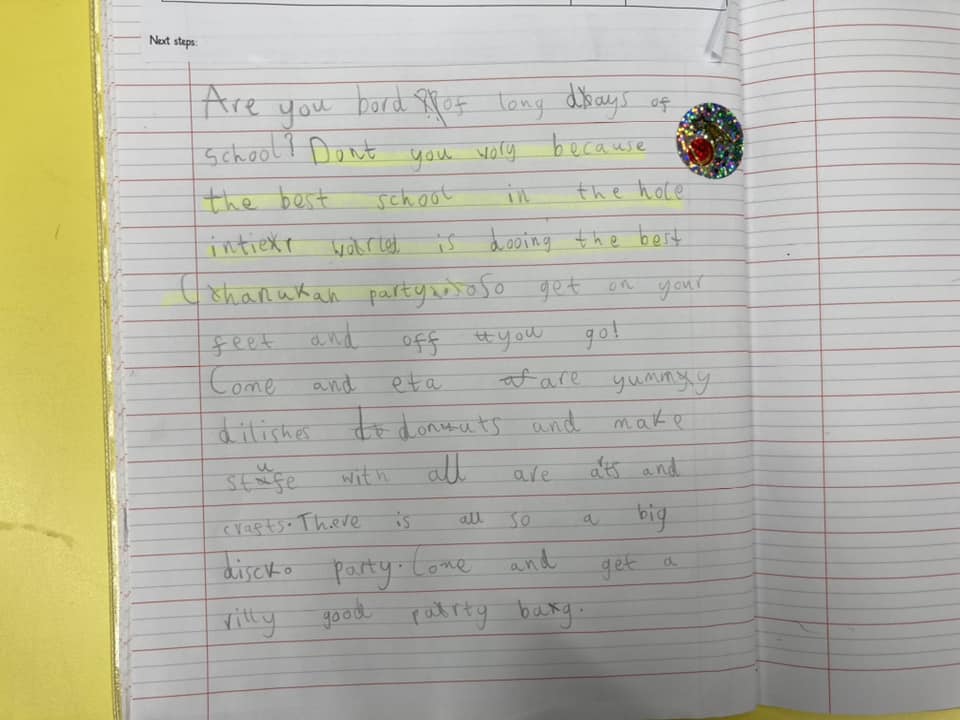 Next steps:
Are you bord of long days of
school? Dont you vory because
the best school in the hole
intiexr world is dooing the best
Chanukah party so get on your
feet and off you go!
Come and eta are yummy
dilishes donuts and make
stufe with all are arts and
crafts. There is all so a big
discko party. Come and get a
rilly good party bag.